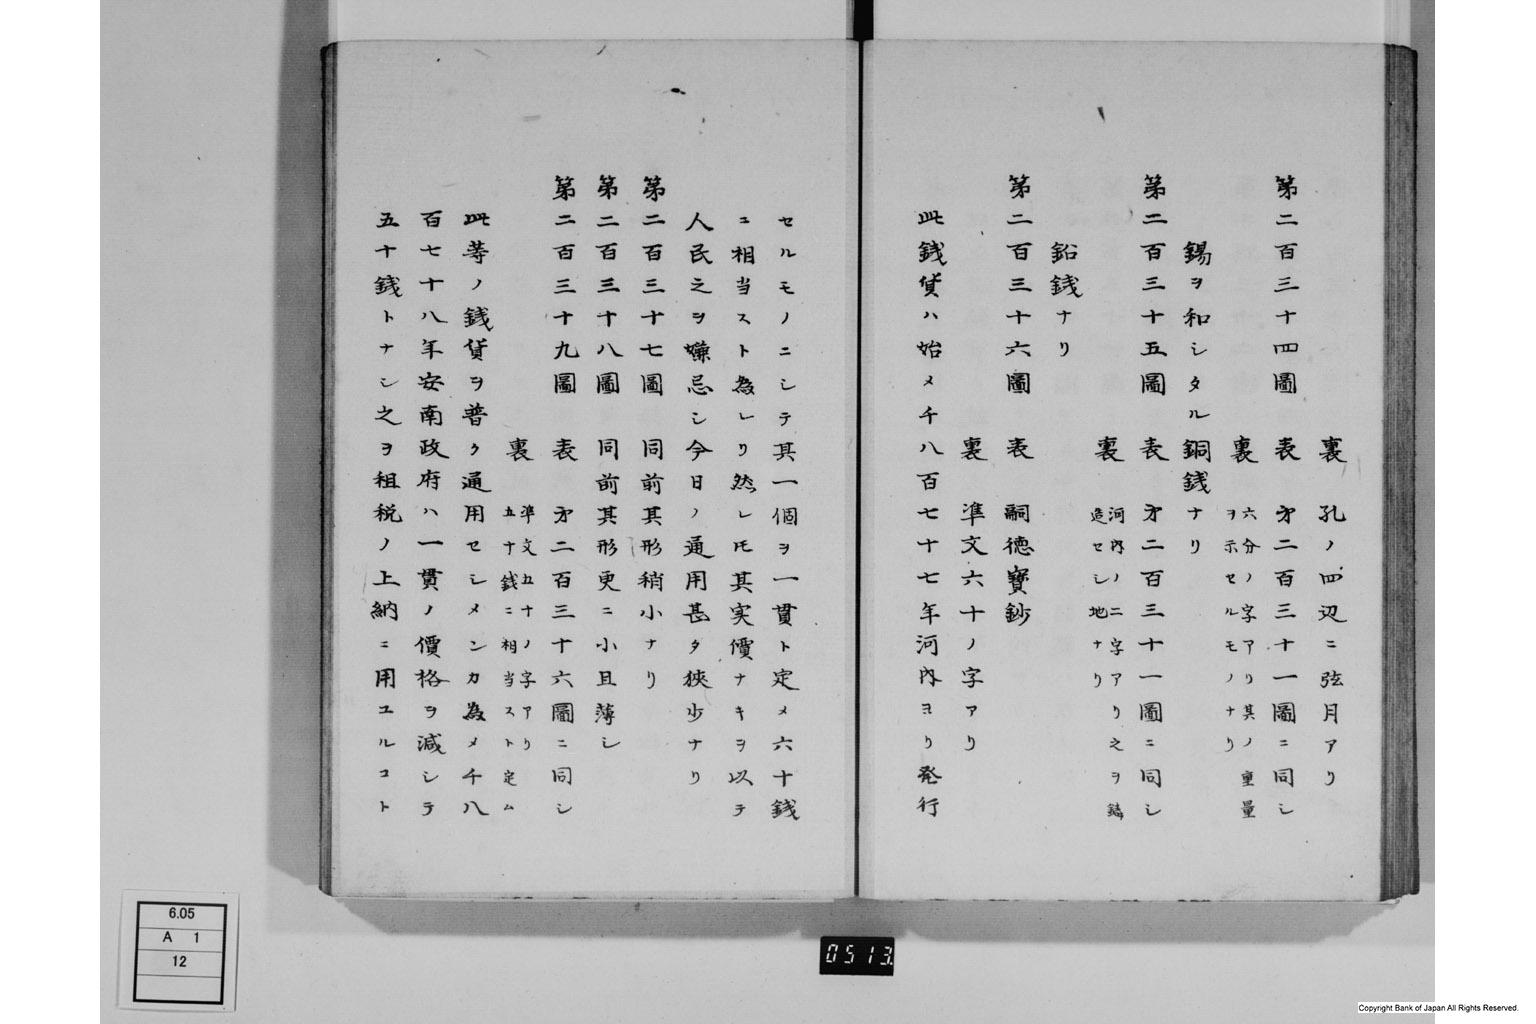 裏 孔ノ四辺ニ弦月アリ
第二百三十四圖 表 㐧二百三十一圖ニ同シ
裏 六分ノ字アリ其ノ重量
ヲ示セルモノナリ
錫ヲ和シタル銅銭ナリ
第二百三十五圖 表 㐧二百三十一圖ニ同シ
裏 河内ノ二字アリ之ヲ鑄
造セシ地ナリ
鉛銭ナリ
第二百三十六圖 表 嗣德寶鈔
裏 準文六十ノ字アリ
此銭貨ハ始メ千八百七十七年河内ヨリ発行
セルモノニシテ其一個ヲ一貫ト定メ六十銭
ニ相当スト為レリ然レ𪜈其実價ナキヲ以テ
人民之ヲ嫌忌シ今日ノ通用甚タ狹少ナリ
第二百三十七圖 同前其形稍小ナリ
第二百三十八圖 同前其形更ニ小且薄シ
第二百三十九圖 表 㐧二百三十六圖ニ同シ
裏 準文五十ノ字アリ
五十銭ニ相当スト定ム
此等ノ銭貨ヲ普ク通用セシメンカ為メ千八
百七十八年安南政府ハ一貫ノ價格ヲ減シテ
五十銭トナシ之ヲ租税ノ上納ニ用ユルコト
6.05
A 1
12
0513
Copyright Bank of Japan All Rights Reserved.